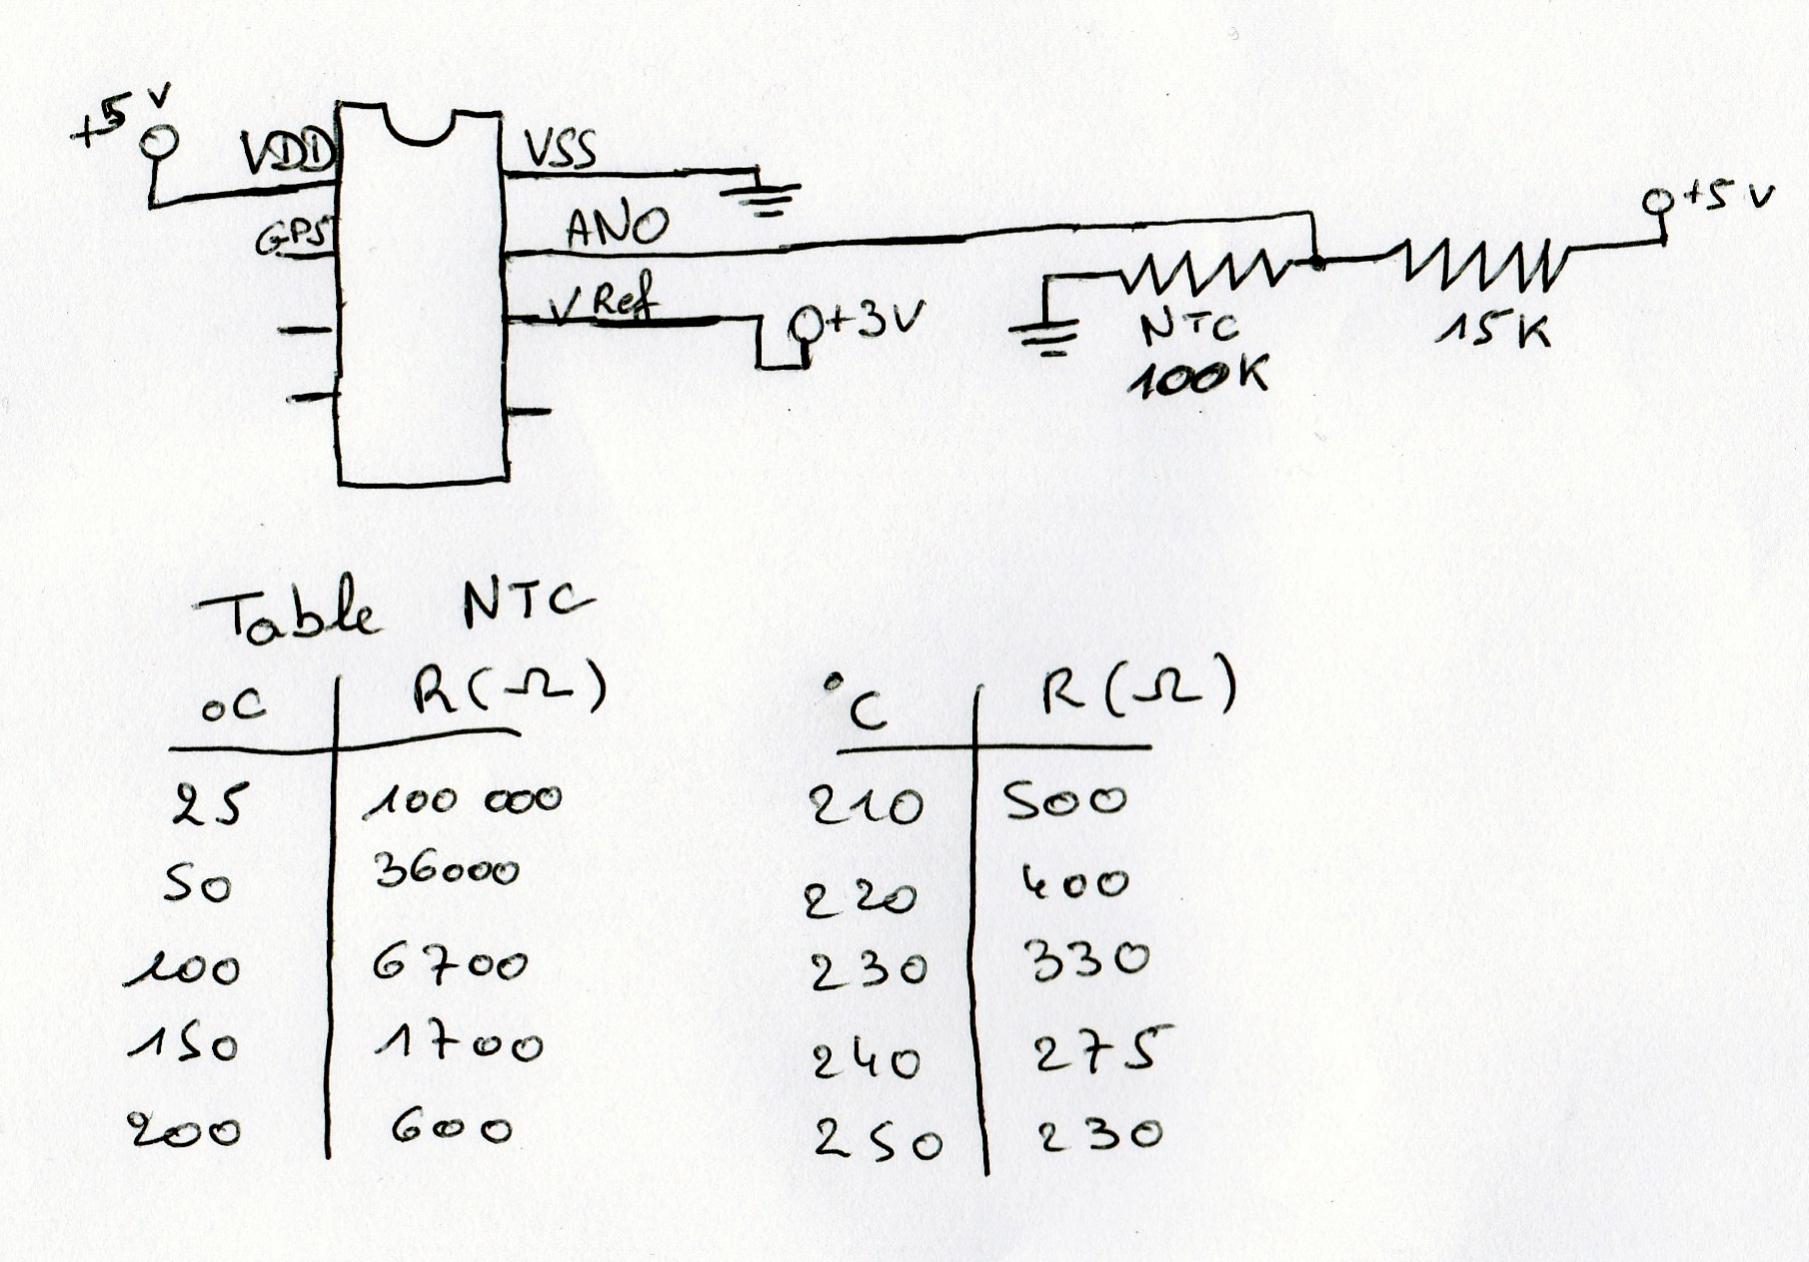 +5 V
VDD
VSS
GP5
AN0
V Ref
+3V
+5 V
NTC
100K
15K
Table NTC
°C R(Ω)
25 100 000
50 36000
100 6700
150 1700
200 600
°C R(Ω)
210 500
220 400
230 330
240 275
250 230